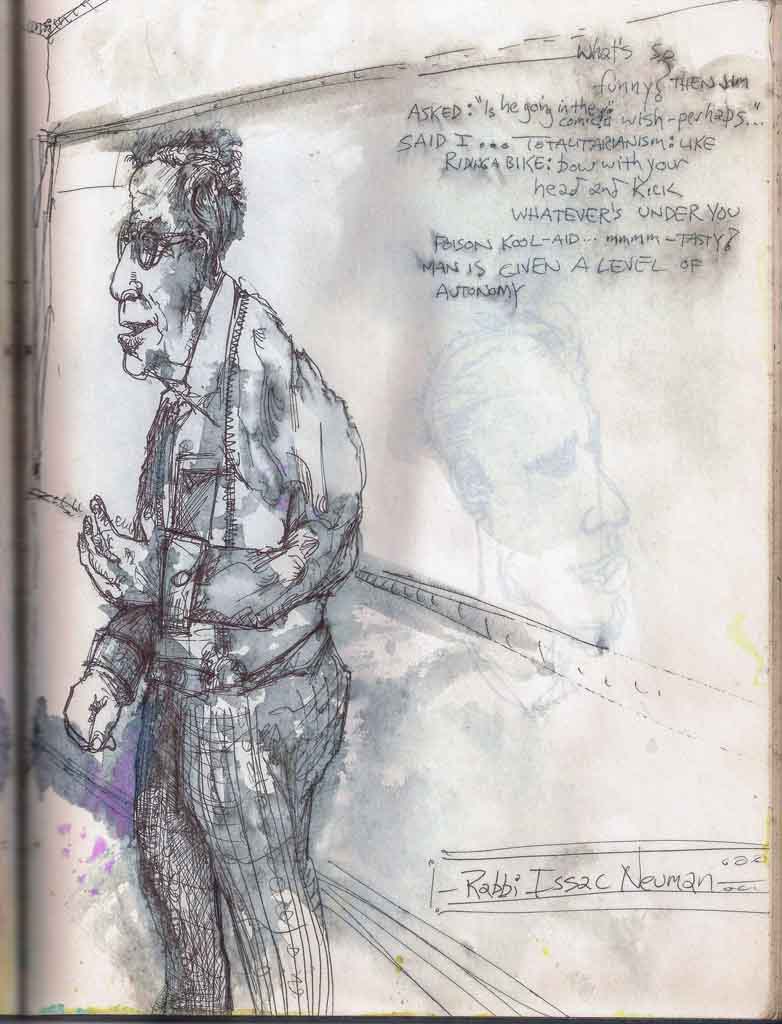 What's so
funny? THEN JIM
ASKED: "Is he going in the
comics?" wish-perhaps..."
SAID I... TOTALITARIANISM: LIKE
RIDING A BIKE: bow with your
head and kick
WHATEVER'S UNDER YOU
POISON KOOL-AID... mmmm-TASTY?
MAN IS GIVEN A LEVEL OF
AUTONOMY
-Rabbi Issac Neuman-